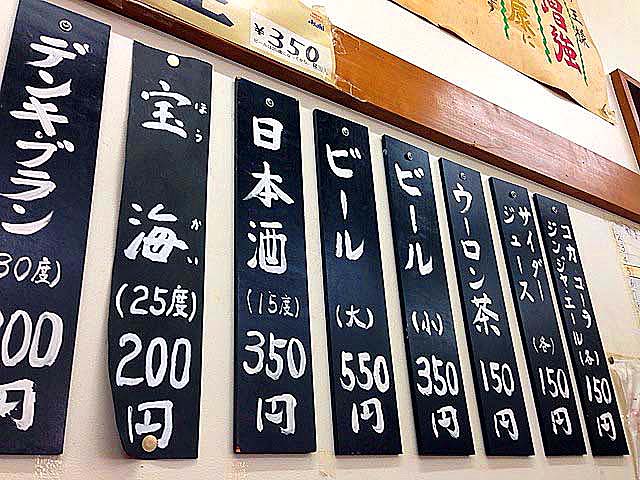 デンキ・ブラン
(30度)
200円
宝海
ほうかい
(25度)
200円
日本酒
(15度)
350円
ビール
(大)
550円
ビール
(小)
350円
ウーロン茶
150円
サイダー
ジュース
(各)
150円
コカコーラ
ジンジャエール
(各)
150円
¥350
増強